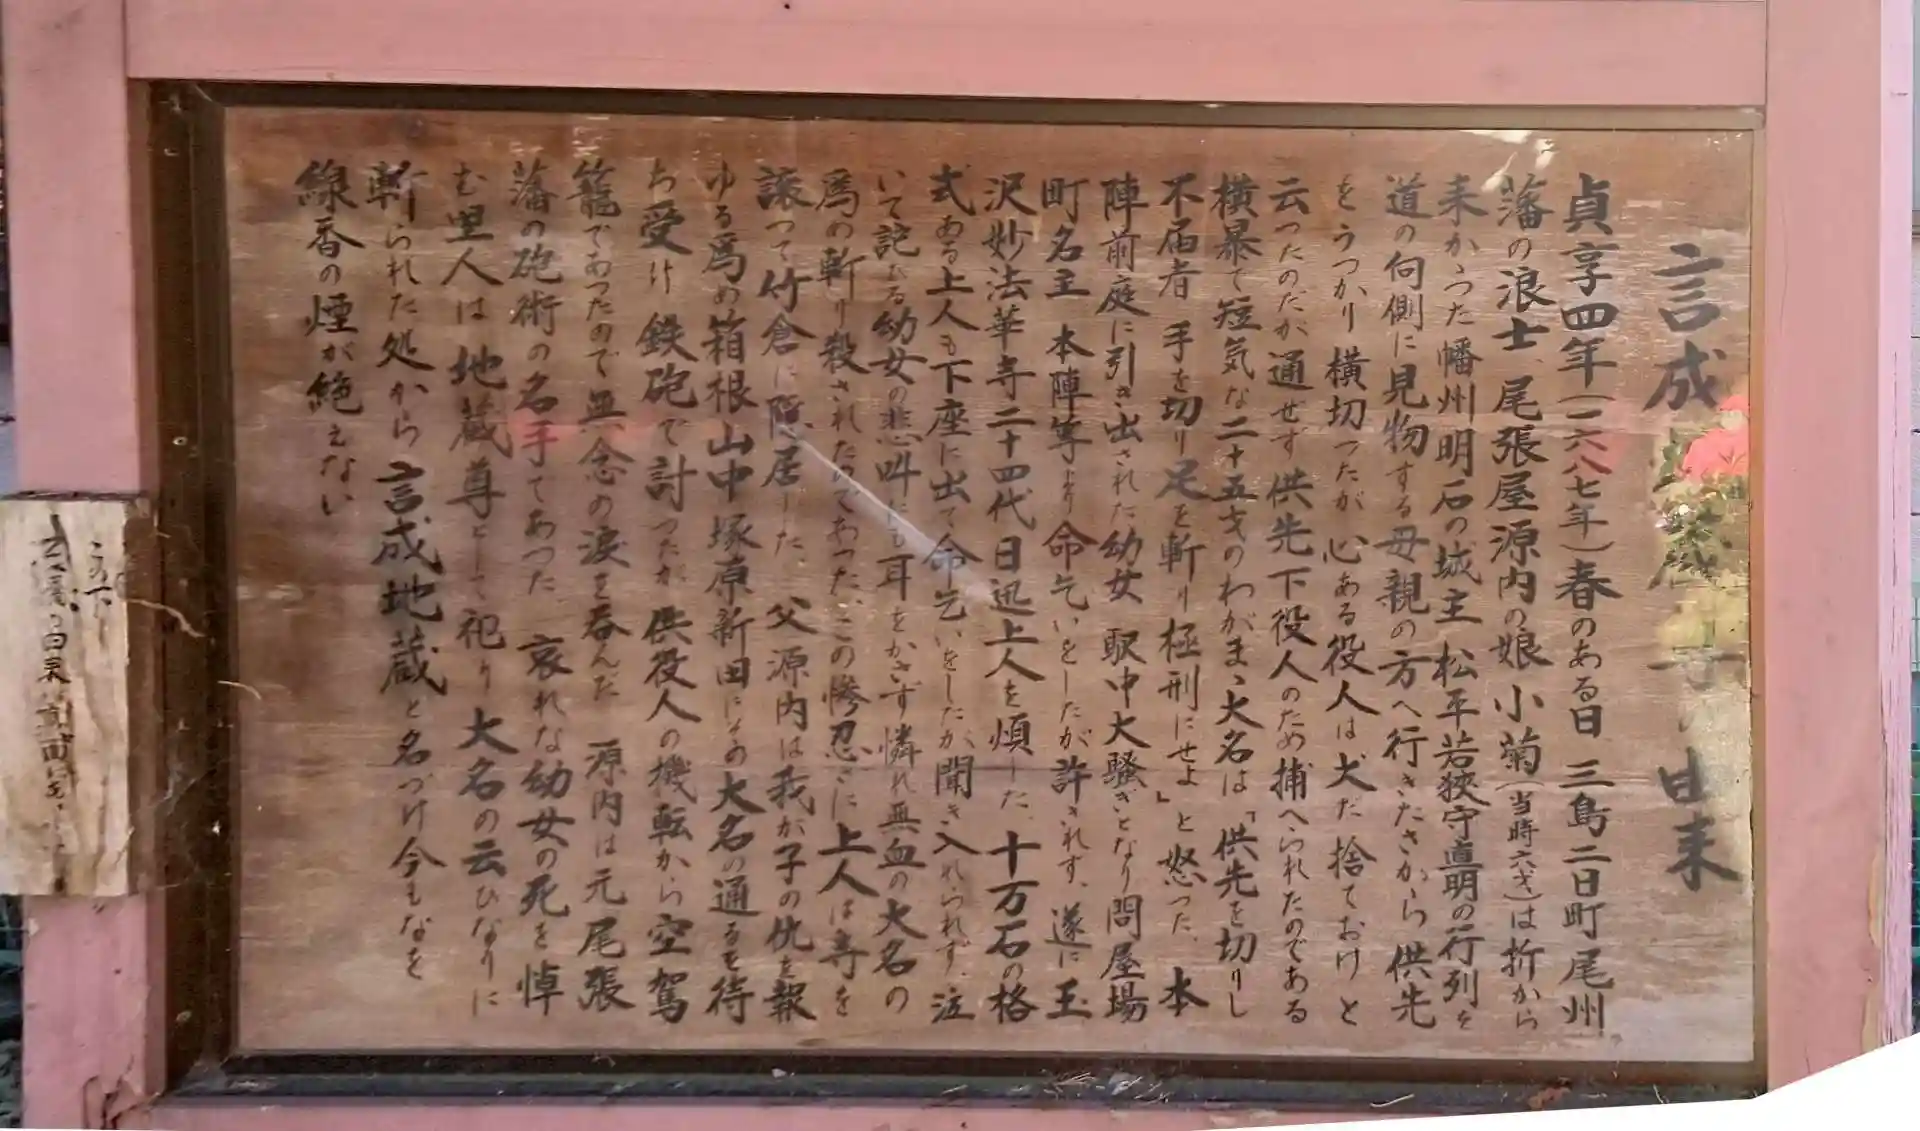 言成地蔵尊の由来
貞享四年(一六八七年)春のある日、三島二日町尾州
藩の浪士、尾張屋源内の娘小菊(当時六才)は折から
来かゝつた幡州明石の城主 松平若狭守直明の行列を
道の向側に見物する母親の方へ行きたさから供先
をうつかり横切つたが、心ある役人は犬だ捨ておけと
云つたのだが通せず供先下役人のため捕へられたのである
横暴で短気な二十五才のわがまゝ大名は「供先を切りし
不届者 手を切り足を斬り極刑にせよ」と怒つた、本
陣前庭に引き出された幼女 町中大騒ぎとなり問屋場
町名主 本陣等より命乞いをしたが許されず、遂に玉
沢妙法華寺二十四代日迅上人を煩した、十万石の格
式ある上人も下座に出て命乞いをしたが聞き入れられず、泣
いて詫びる幼女の悲叫にも耳をかさず憐れ無血の大名の
為め斬り殺されたのであつた、この惨忍さに上人は寺を
譲つて竹倉に隠居した、父源内は我が子の仇を報
ゆる為め箱根山中塚原新田にその大名の通るを待
ち受け鉄砲で討つたが供役人の機転から空駕
籠であつたので無念の涙を呑んだ 源内は元尾張
藩の砲術の名手であつた、哀れな幼女の死を悼
む里人は地蔵尊として祀り大名の云ひなりに
斬られた処から言成地蔵と名づけ今もなを
線香の煙が絶えない
この下
の由来